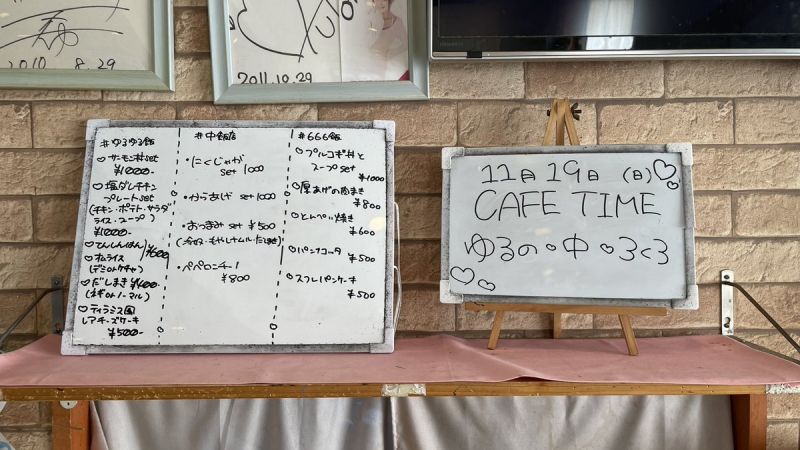 2010. 8. 29
2011. 10. 29
#ゆるゆる飯
♡サーモン丼set
¥1000-
♡塩ダレチキン
プレートset
(チキン・ポテト・サラダ
ライス・スープ)
¥1000-
♡てんしんはん ¥600
♡オムライス
(デミorケチャ)
♡だしまき ¥400-
(ネギorノーマル)
♡ティラミス風
レアチーズケーキ
¥500-
#中飯店
・にくじゃが
set 1000
・からあげ set 1000
・おつまみ set ¥500
・ペペロンチーノ
¥800
#666飯
♡プルコギ丼と
スープset
¥1000
♡厚あげの肉まき
¥800
♡とんぺい焼き
¥600
♡パンナコッタ
¥500
♡スフレパンケーキ
¥500
11月 19日 (日)♡
CAFE TIME
ゆるの・中・ろくろ